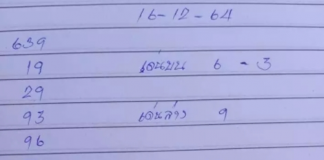 16-12-64
639
19 เด่นบน 6 - 3
29
93 เด่นล่าง 9
96